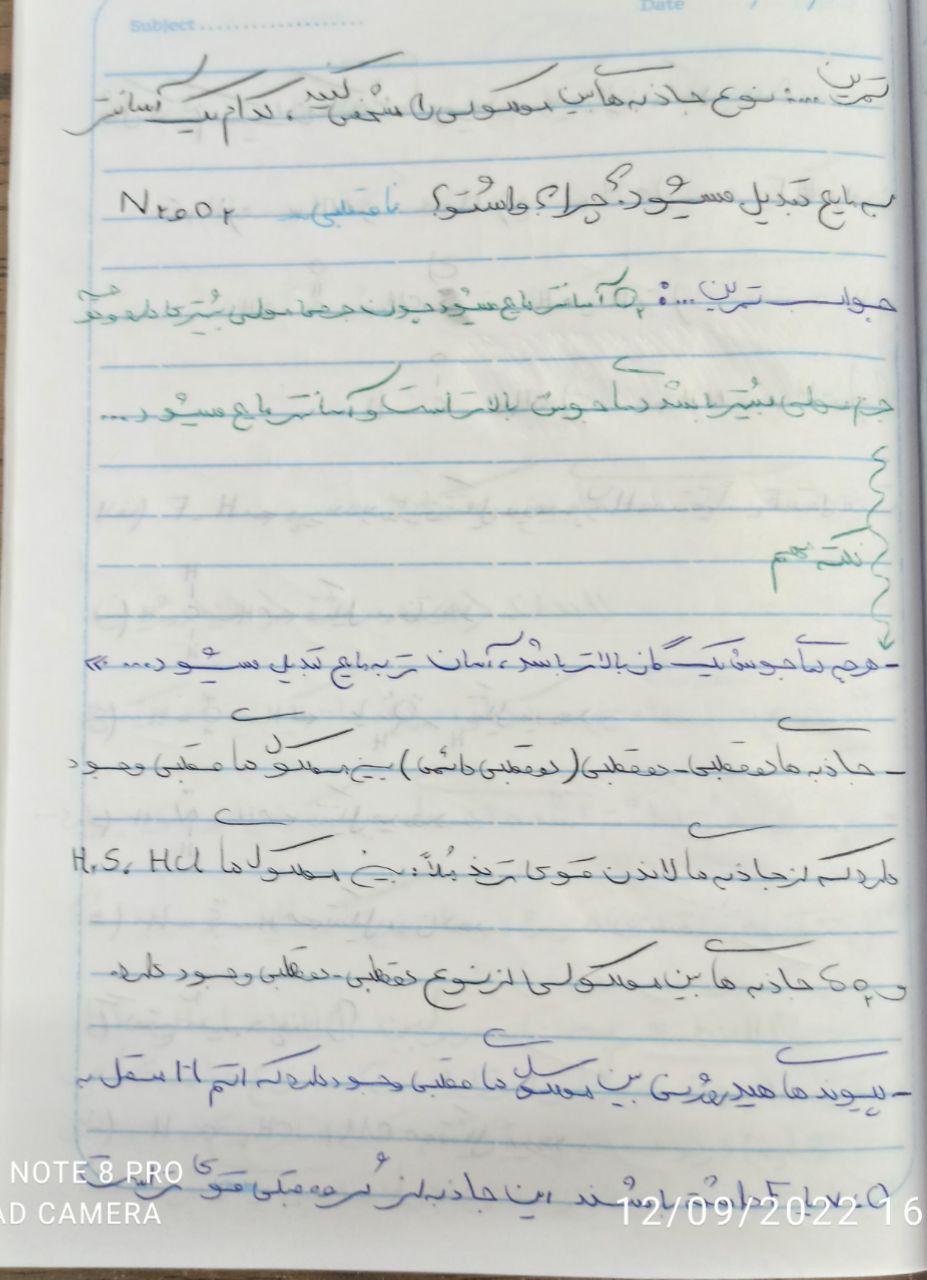 Subject
Date / /
تمرین ...: نوع جاذبه های بین مولکولی را مشخص کنید، کدام یک آسانتر
به مایع تبدیل میشود؟ چرا؟ واستو؟ ناقطبی N۲ و O۲
جواب تمرین ...: O۲ آسانتر مایع میشود چون جرم مولی بیشتری دارد و هرچه
جرم مولی بیشتر باشد دمای جوش بالاتر است و آسانتر مایع میشود...
نکته مهم
- هرچه دمای جوش یک گاز بالاتر باشد، آسان تر به مایع تبدیل میشود...»
- جاذبه های دوقطبی - دوقطبی (دوقطبی دائمی) بین مولکول های قطبی وجود
دارد که از جاذبه های لاندن قوی ترند مثلاً: بین مولکول های H۲S، HCl
و SO۲ جاذبه های بین مولکولی از نوع دوقطبی - دوقطبی وجود دارد.
- پیوند های هیدروژنی بین مولکول های قطبی وجود دارد که اتم H متصل به
O، N یا F داشته باشند این جاذبه از گروه قبلی قوی تر است
NOTE 8 PRO
AD CAMERA
12/09/2022 16